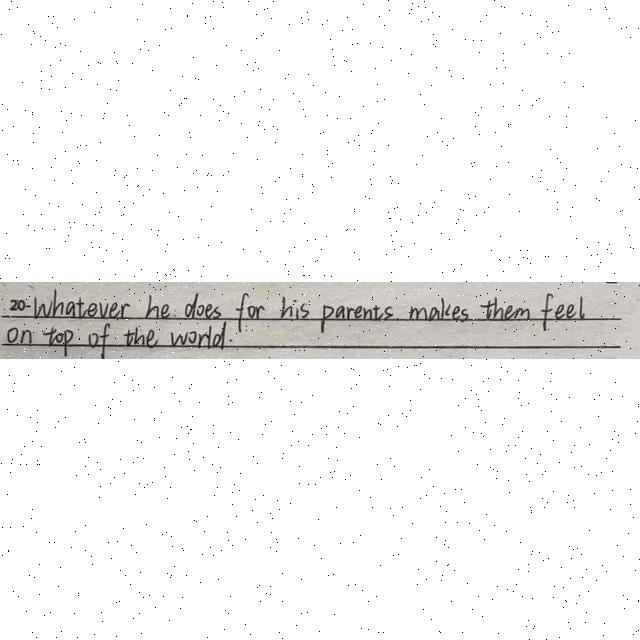 20-Whatever he does for his parents makes them feel
on top of the world.